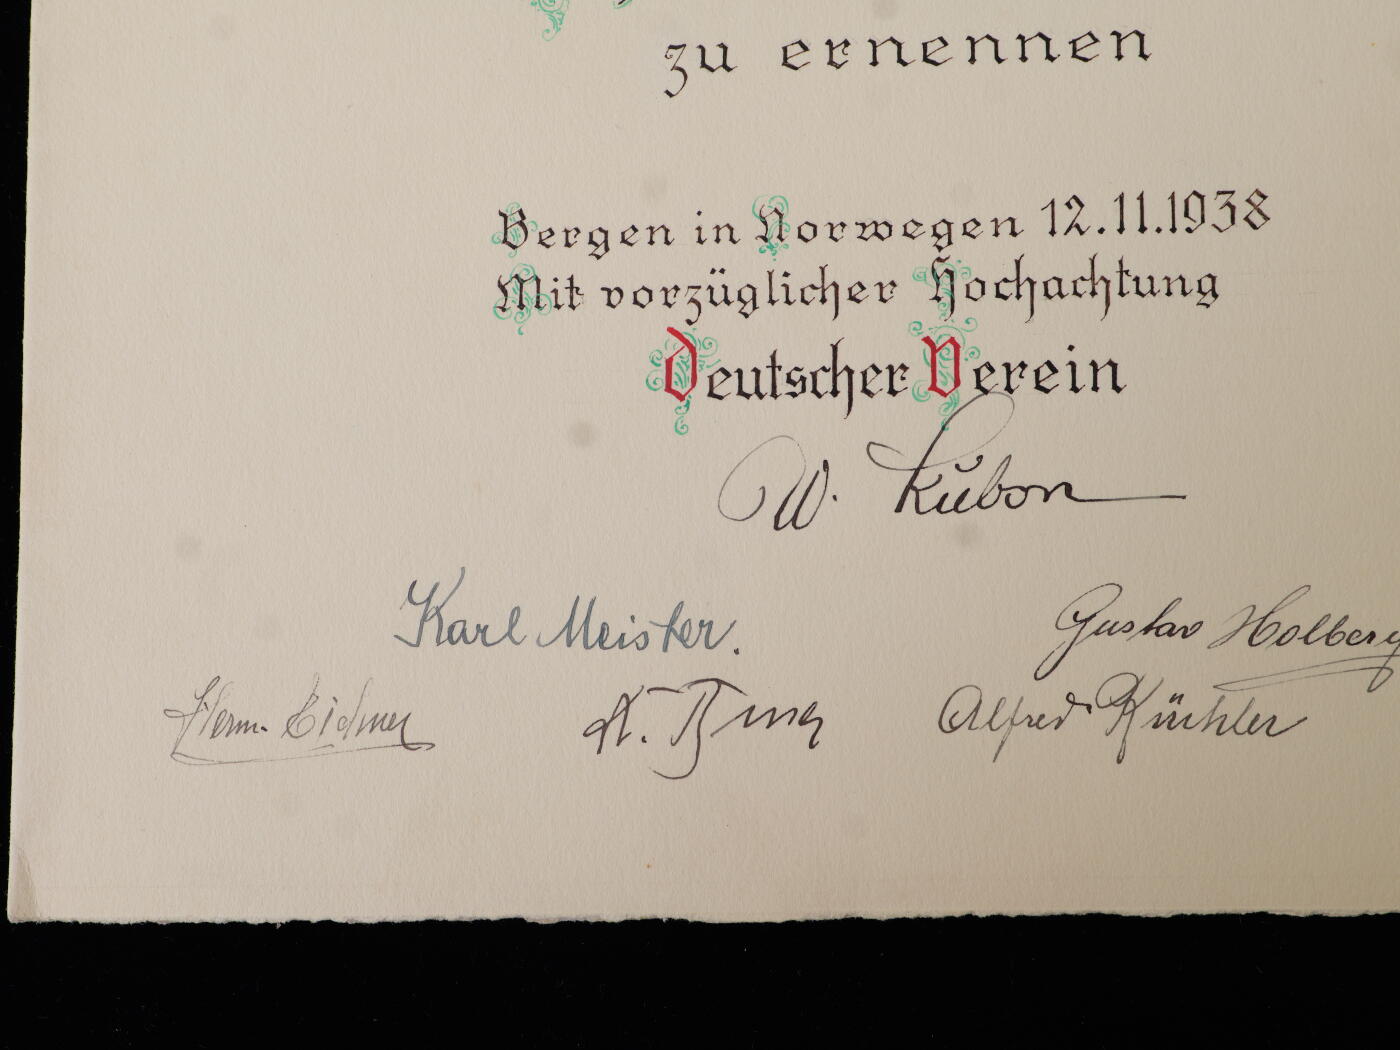 zu ernennen
Bergen in Norwegen 12.11.1938
Mit vorzüglicher Hochachtung
Deutscher Verein
W. Kubon
Karl Meister.
Gustav Holberg
Herm.
Alfred